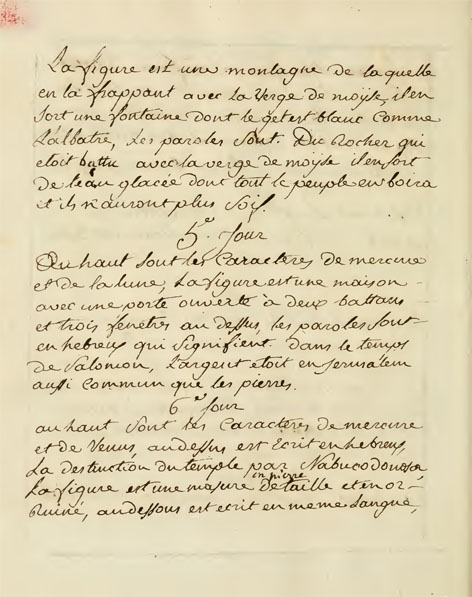 La figure est une montagne de laquelle
en la frappant avec la Verge de moÿse, il en
sort une fontaine dont le getent blanc comme
L'albatre, Les paroles Sont. Du Rocher qui
etoit battu avec la verge de moÿse il en sort
de l'eau glacée dont tout le peuple en boira
et ils n'auront plus Soif.
5.e Jour
Au haut Sont les Caractères de mercure
et de la lune, La figure est une maison
avec une porte ouverte à deux battans
et trois fenêtres au dessus, les paroles Sont
en hebreux qui Signifient. Dans le temps
de Salomon, L'argent etoit en Jerusalem
aussi Commun que les pierres.
6.e Jour
au haut Sont les Caractères de mercure
et de Venus, au dessus est Ecrit en hebreux,
La destruction du temple par Nabucodonosor
La figure est une masure en pierre de taille et en or
Ruiné, au dessous est ecrit en meme Langue,